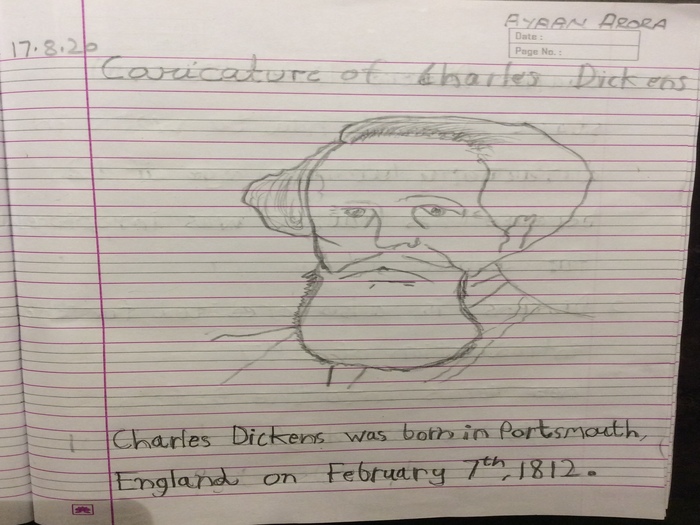 AYAAN ARORA
17.8.20
Date :
Page No. :
Caricature of Charles Dickens
1 Charles Dickens was born in Portsmouth,
England on February 7th, 1812.